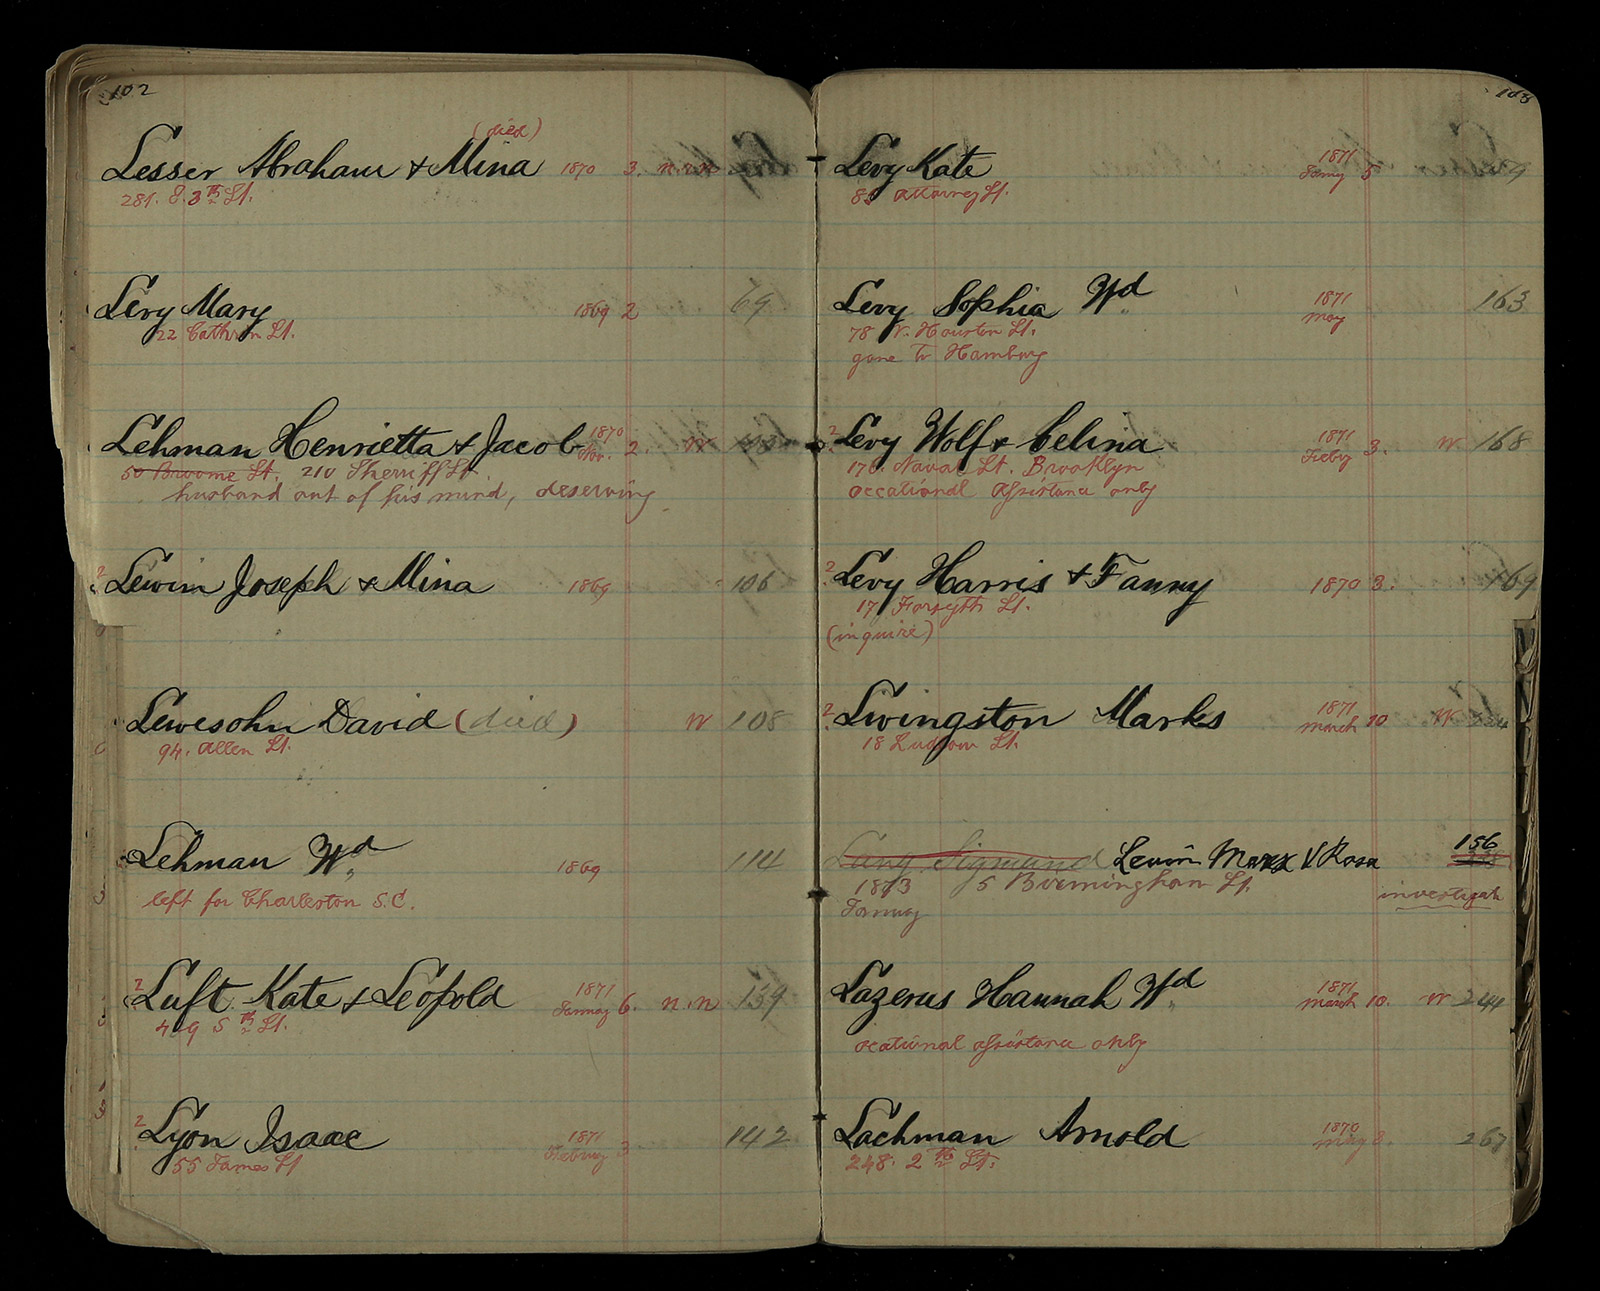 102
(died)
Lesser Abraham & Mina 1870 3. n.
281. E. 3th St.
Levy Mary 1869 2 69
22 Cathrin St.
Lehman Henrietta & Jacob 1870 Nov. 2. W
50 Broome St. 210 Sherriff St.
husband out of his mind, deserving
2 Lewin Joseph & Mina 1869 106
Lewesohn David (died) W 108
94. Allen St.
Lehman Wd 1869 114
left for Charleston S.C.
2 Luft Kate & Leopold 1871 Januay 6. n.n 139
409 5th St.
2 Lyon Isaac 1871 Febuay 3 142
55 James St
103
Levy Kate 1871 Januy 5
85 Attorney St.
Levy Sophia Wd 1871 May 163
78 W. Houston St.
gone to Hamburg
2 Levy Wolf & Celina 1871 Feeby 3. W. 168
176. Naval St. Brooklyn
occational assistance only
2 Levy Harris & Fanny 1870 3. 169
17 Forsyth St.
(inquire)
2 Livingston Marks 1871 March 10 W
18 Ludlow St.
Lang Sigmund Lewin Marx & Rosa 156
1873 5 Birmingham St. investigate
Januay
Lazerus Hannah Wd 1871 March 10. W 244
ocational assistance only
Lachman Arnold 1870 May 8. 267
248. 2th St.